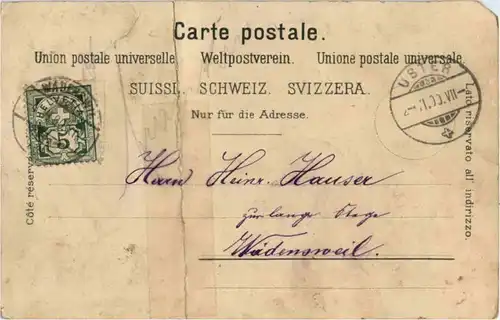 Carte postale.
Union postale universelle. Weltpostverein. Unione postale universale.
SUISSE. SCHWEIZ. SVIZZERA.
Nur für die Adresse.
Côté réservé
Lato riservato all' indirizzo.
HELVETIA
5
USTER
Herrn Heinr. Hauser
zur lange Stege
Wädensweil.